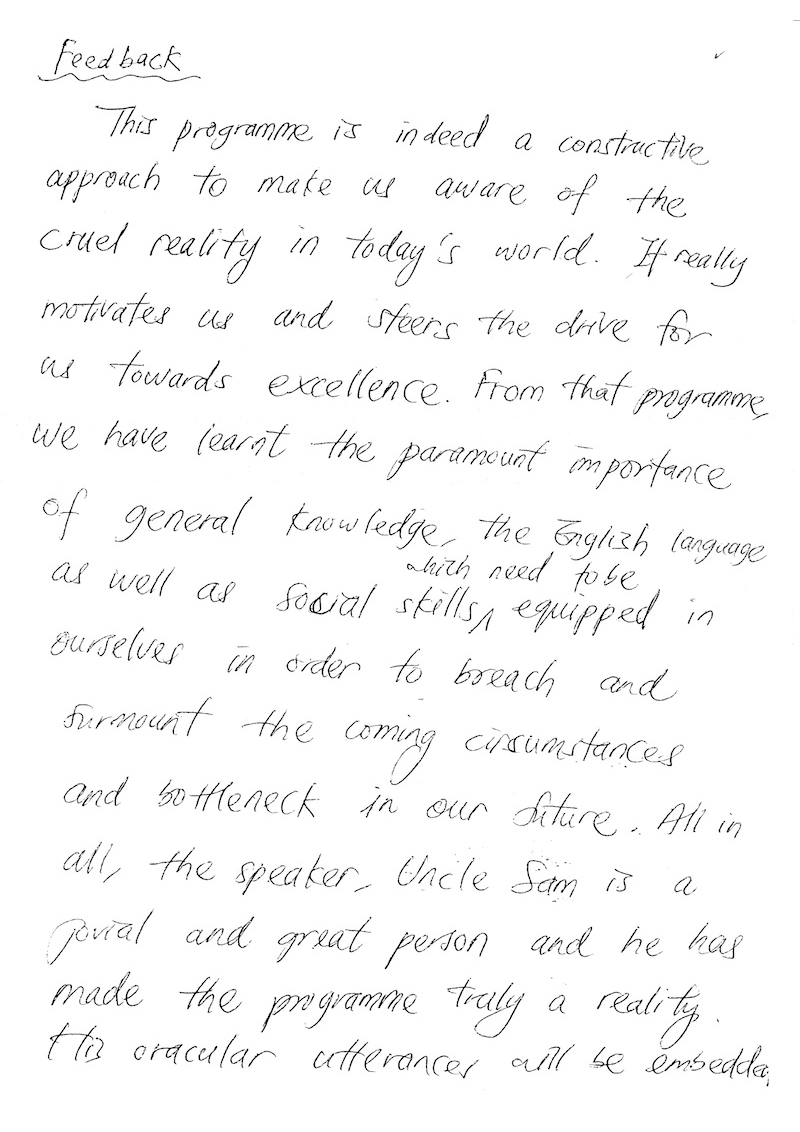 Feedback
This programme is indeed a constructive
approach to make us aware of the
cruel reality in today's world. It really
motivates us and steers the drive for
us towards excellence. From that programme,
we have learnt the paramount importance
of general knowledge, the English language
which need to be
as well as social skills, equipped in
ourselves in order to breach and
surmount the coming circumstances
and bottleneck in our future. All in
all, the speaker, Uncle Sam is a
jovial and great person and he has
made the programme truly a reality.
His oracular utterances will be embedded